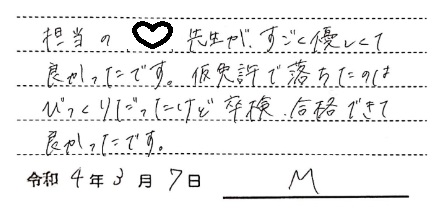 担当の♡先生が、すごく優しくて
良かったです。仮免許で落ちたのは
びっくりだったけど卒検、合格できて
良かったです。
令和4年3月7日 M